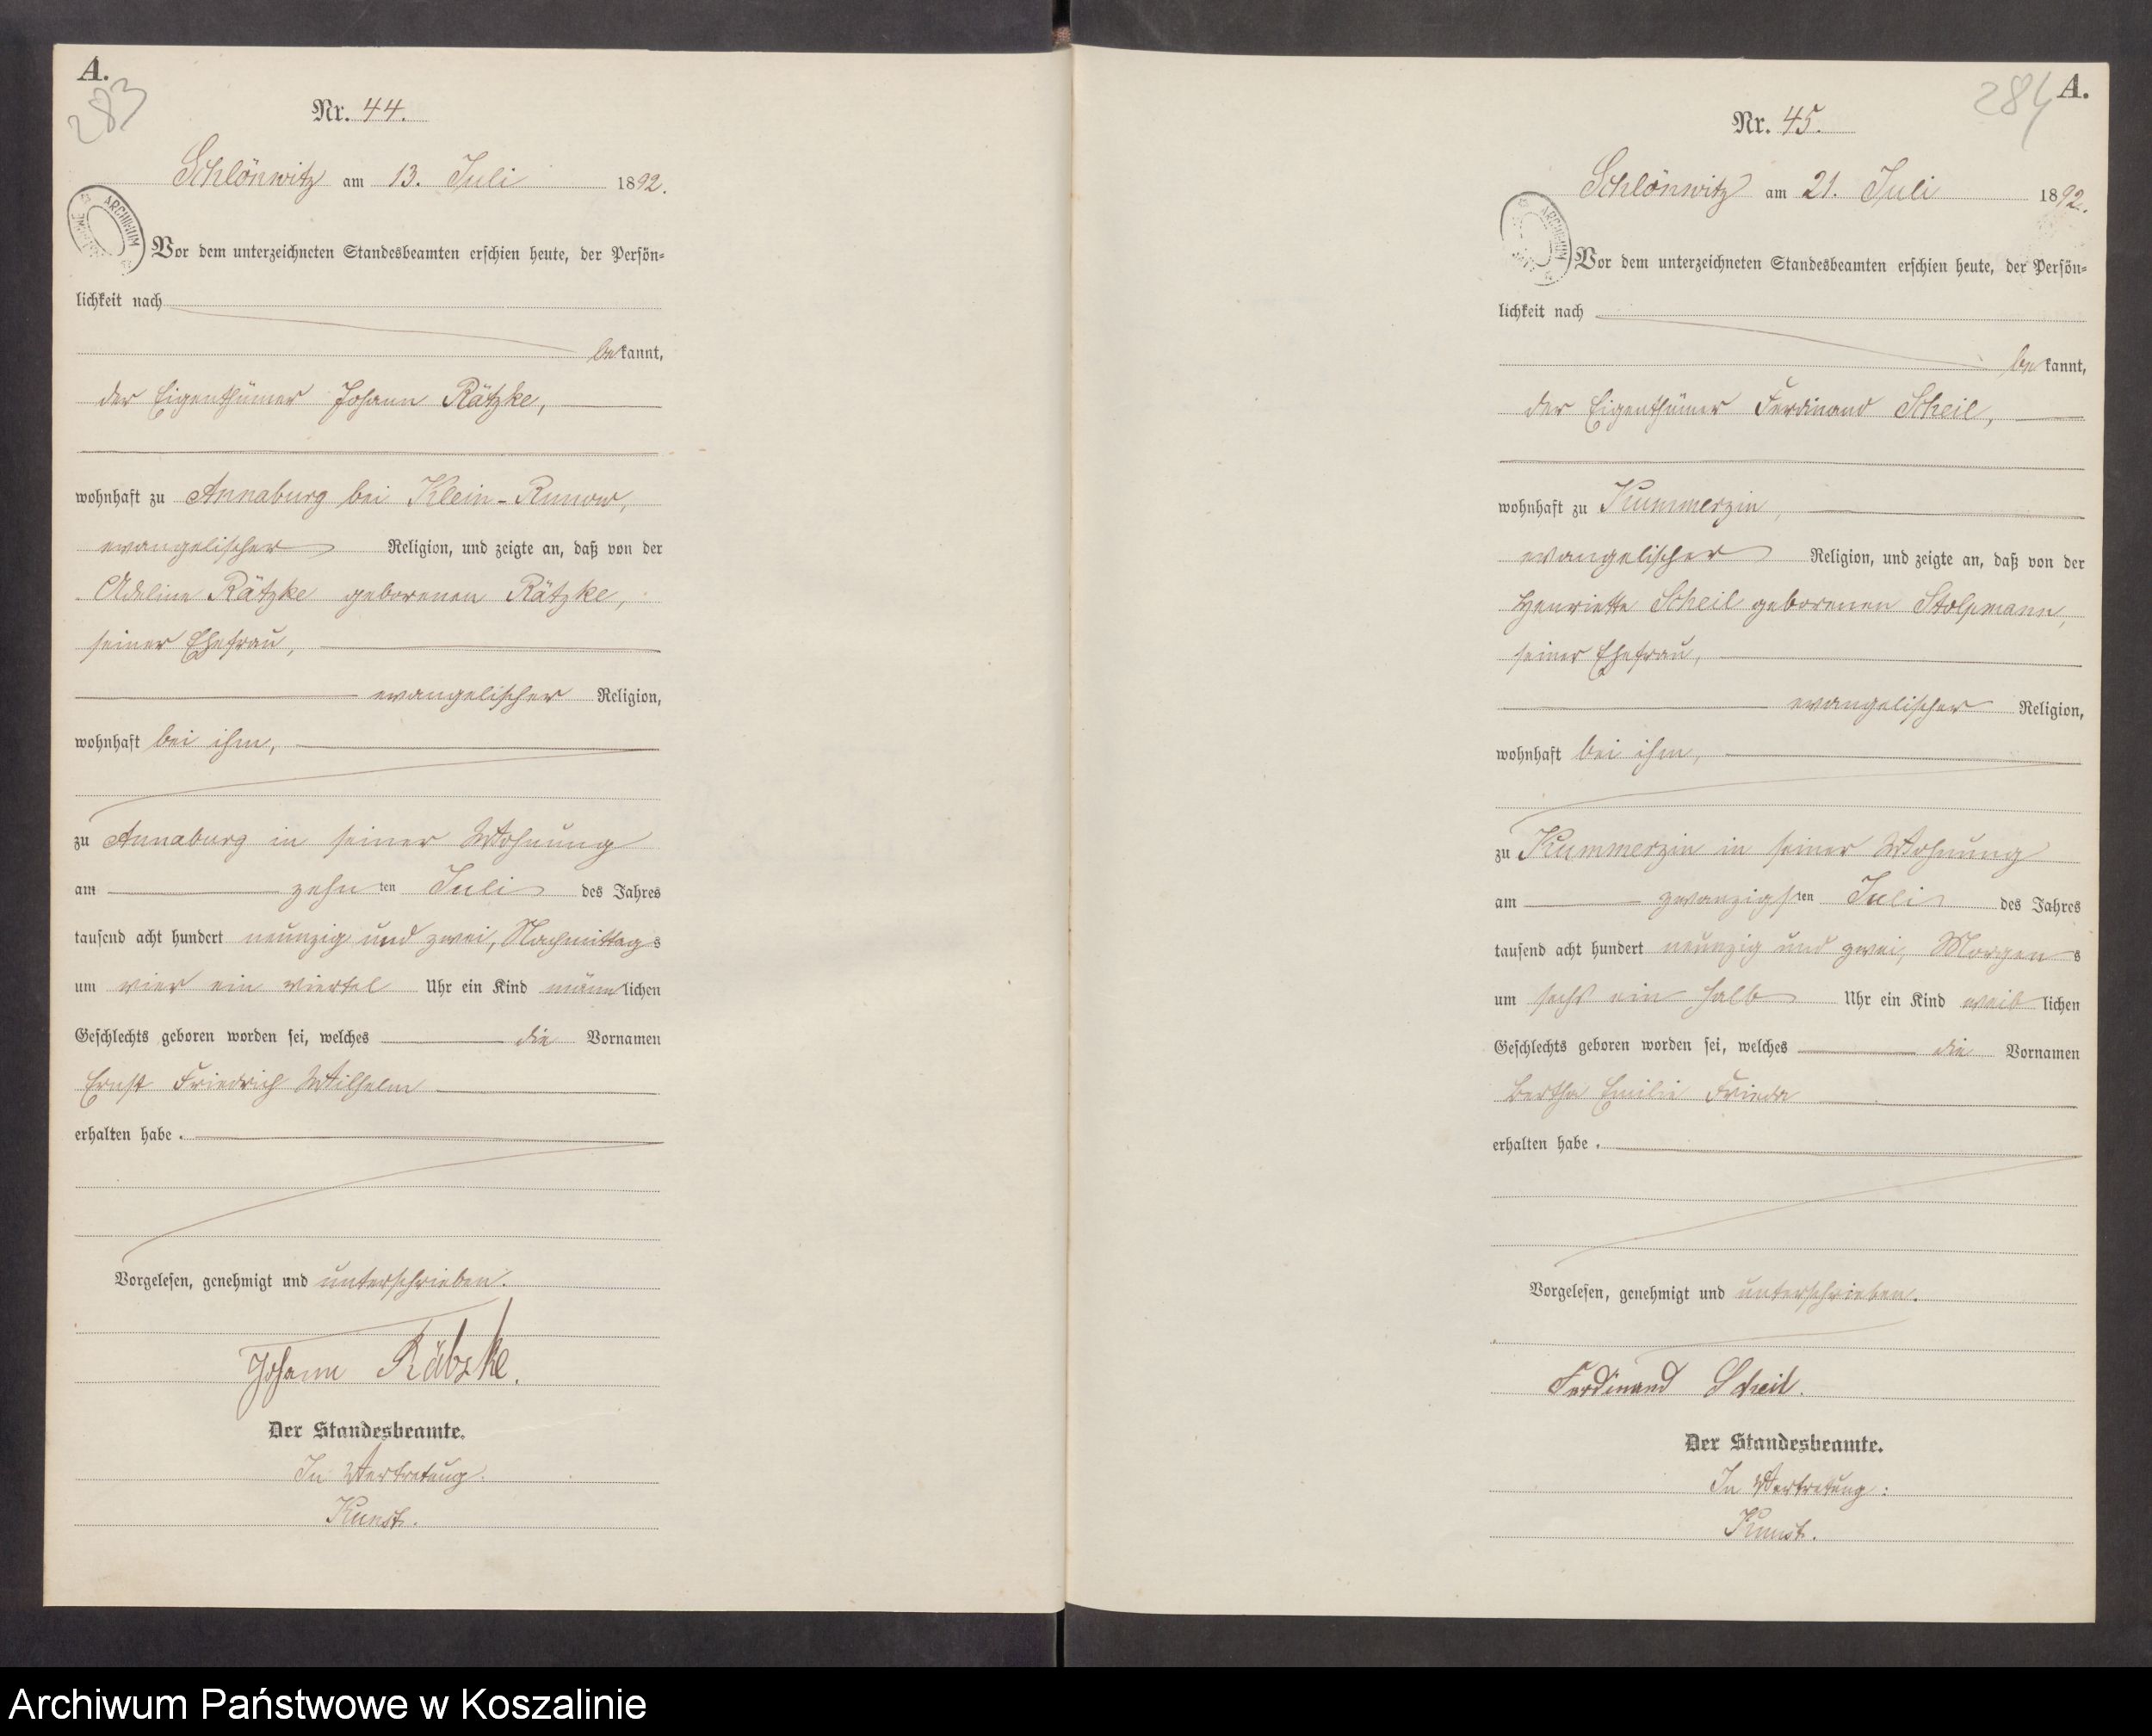 A.
283
Nr. 44.
Schlönwitz am 13. Juli 1892.
ARCHIWUM
Vor dem unterzeichneten Standesbeamten erschien heute, der Persön-
lichkeit nach
bekannt,
der Eigenthümer Johann Rätzke,
wohnhaft zu Annaburg bei Klein-Runow,
evangelischer Religion, und zeigte an, daß von der
Adeline Rätzke geborenen Rätzke,
seiner Ehefrau,
evangelischer Religion,
wohnhaft bei ihm,
zu Annaburg in seiner Wohnung
am zehnten Juli des Jahres
tausend acht hundert neunzig und zwei, Nachmittags
um vier ein viertel Uhr ein Kind männlichen
Geschlechts geboren worden sei, welches die Vornamen
Ernst Friedrich Wilhelm
erhalten habe.
Vorgelesen, genehmigt und unterschrieben.
Johann Rätzke.
Der Standesbeamte.
In Vertretung.
Kunst.
A.
284
Nr. 45.
Schlönwitz am 21. Juli 1892.
ARCHIWUM
Vor dem unterzeichneten Standesbeamten erschien heute, der Persön-
lichkeit nach
bekannt,
der Eigenthümer Ferdinand Scheil,
wohnhaft zu Kummerzin,
evangelischer Religion, und zeigte an, daß von der
Henriette Scheil geborenen Stolpmann,
seiner Ehefrau,
evangelischer Religion,
wohnhaft bei ihm,
zu Kummerzin in seiner Wohnung
am zwanzigsten Juli des Jahres
tausend acht hundert neunzig und zwei, Morgens
um sechs ein halb Uhr ein Kind weiblichen
Geschlechts geboren worden sei, welches die Vornamen
Bertha Emilie Frieda
erhalten habe.
Vorgelesen, genehmigt und unterschrieben.
Ferdinand Scheil.
Der Standesbeamte.
In Vertretung:
Kunst.
Archiwum Państwowe w Koszalinie